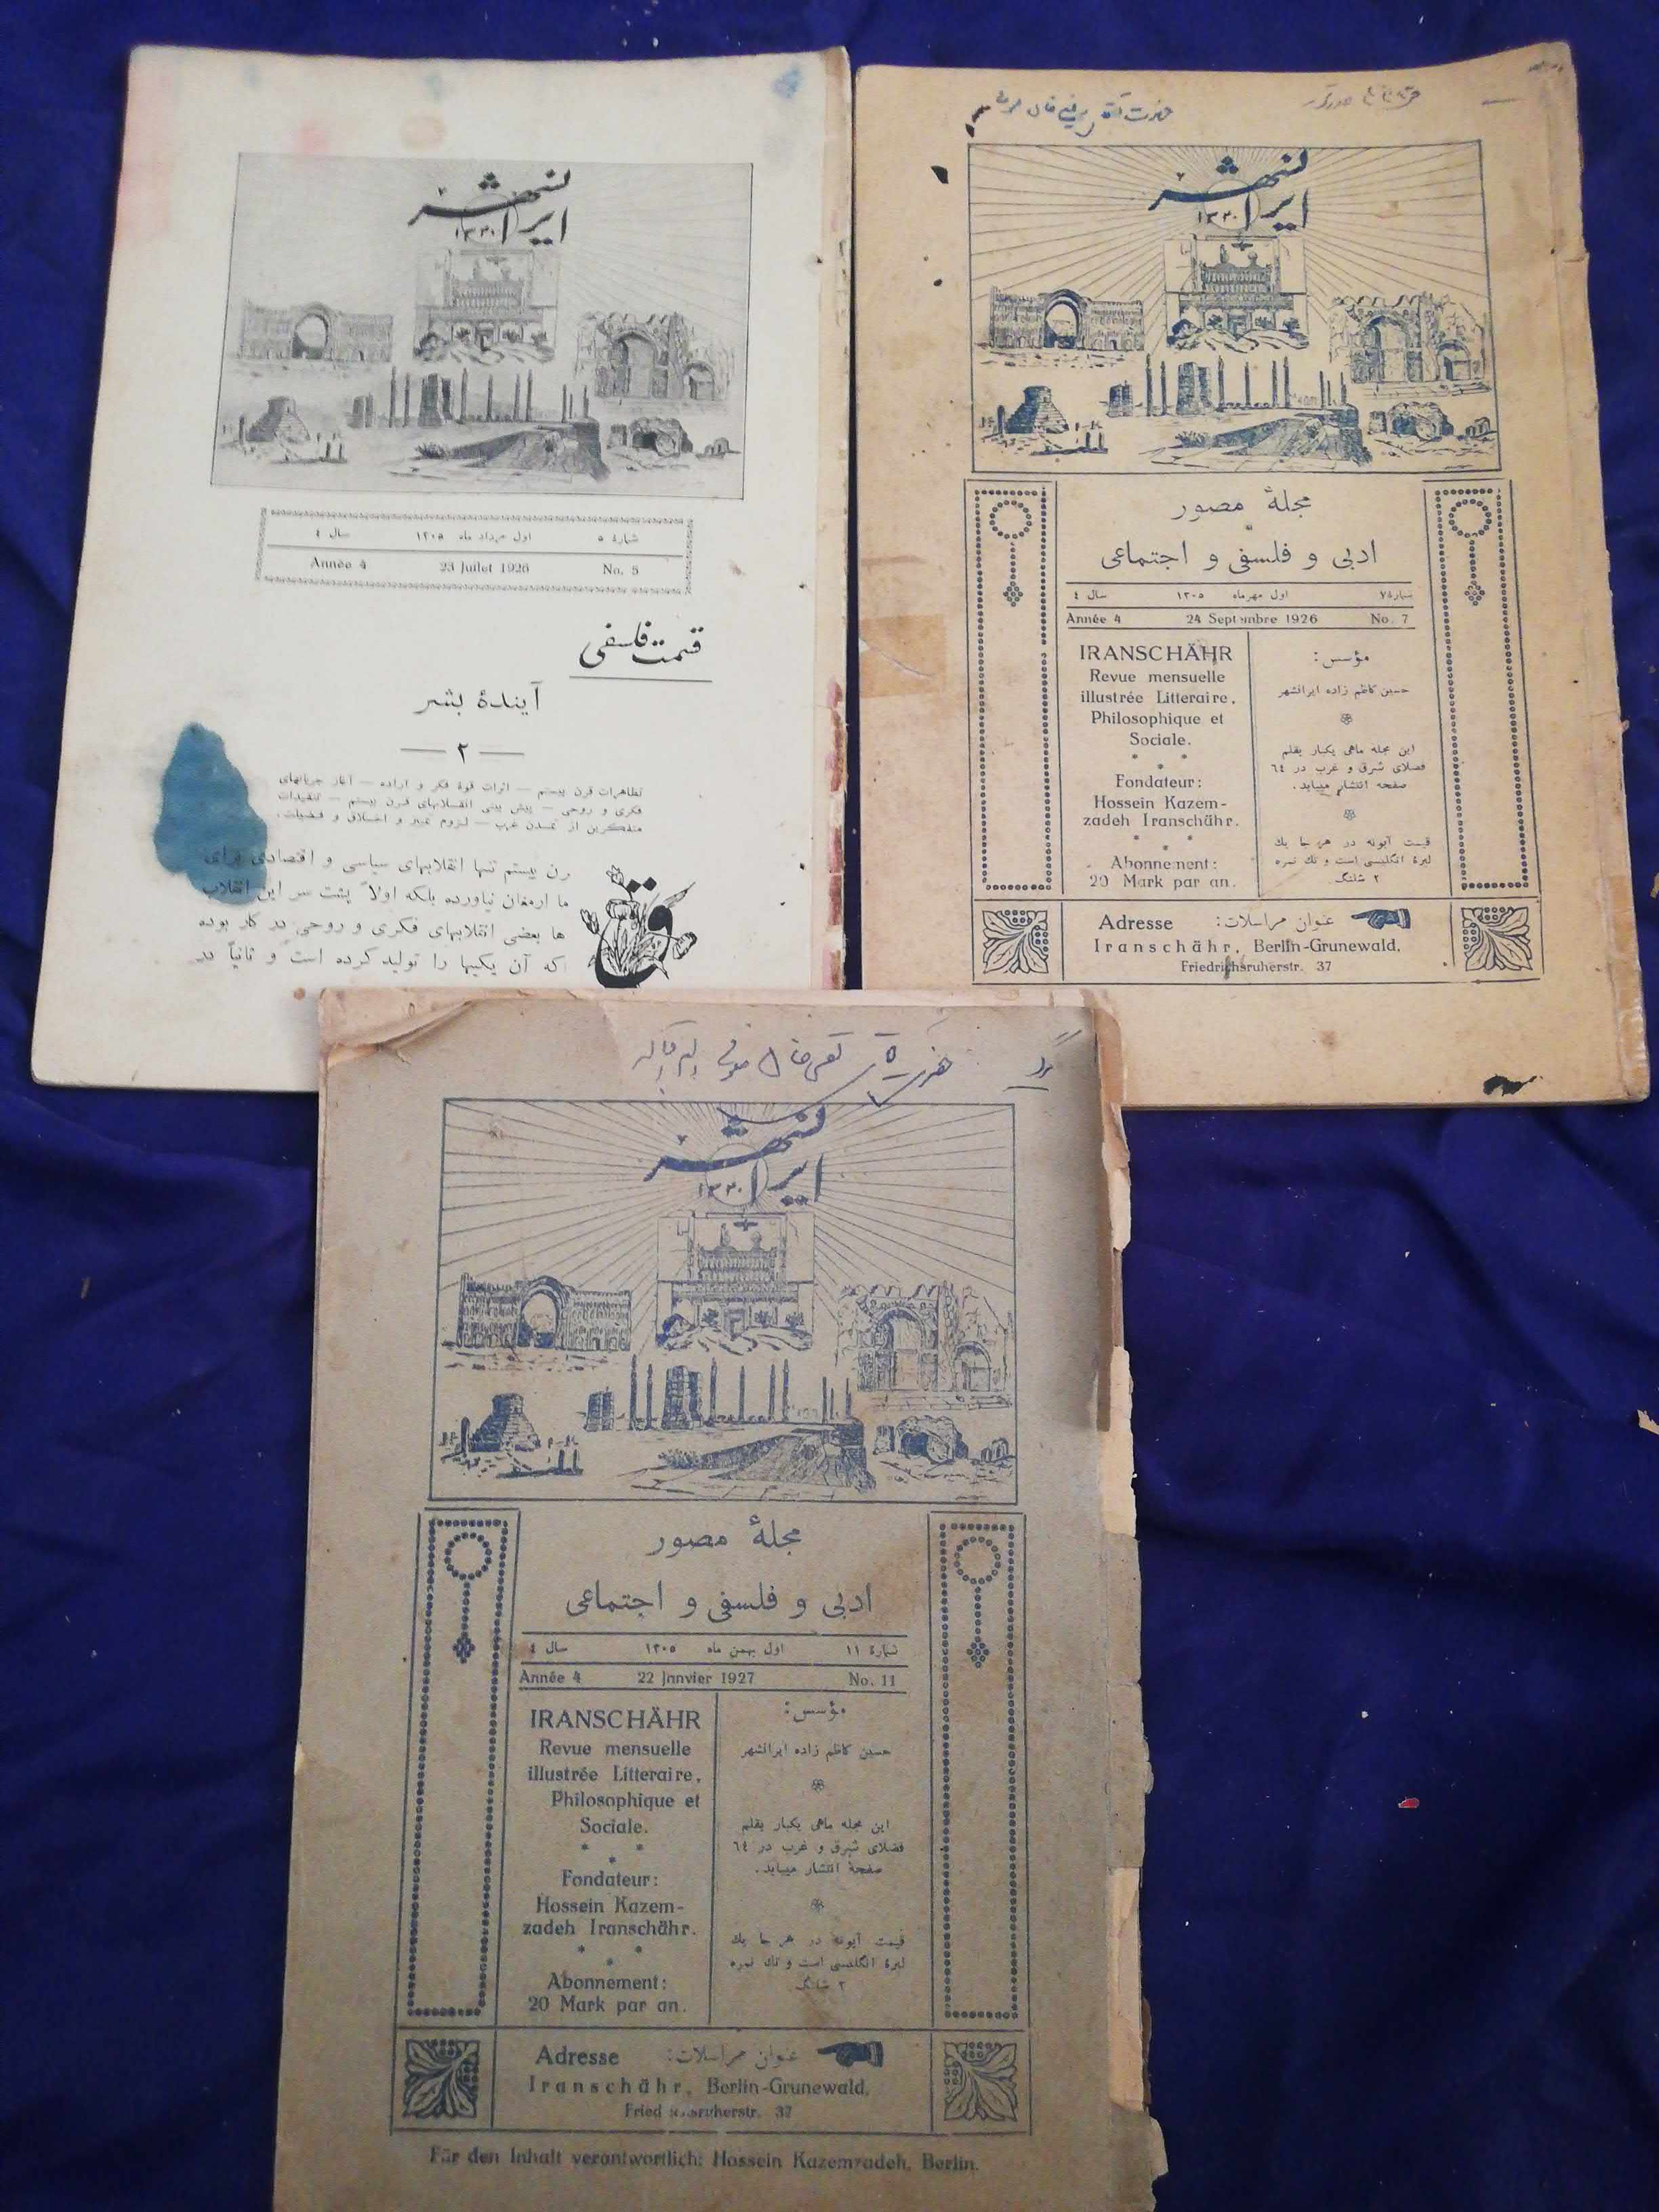 ایرانشهر
١٣٣٠
شمارهٔ ٥ اول مرداد ماه ١٣٠٥ سال ٤
Année 4 23 Juilet 1926 No. 5
قسمت فلسفی
آیندهٔ بشر
— ٢ —
تظاهرات قرن بیستم — اثرات قوهٔ فکر و اراده — آغاز جریانهای
فکری و روحی — پیش بینی انقلابهای قرن بیستم — تنقیدات
متفکرین از تمدن غرب — لزوم تمیز و اخلاق و فضیلت.
قرن بیستم تنها انقلابهای سیاسی و اقتصادی برای
ما ارمغان نیاورده بلکه اولاً پشت سر این انقلاب
ها بعضی انقلابهای فکری و روحی در کار بوده
که آن یکیها را تولید کرده است و ثانیاً در
حضرت
ایرانشهر
١٣٣٠
مجلهٔ مصور
ادبی و فلسفی و اجتماعی
شمارهٔ ٧ اول مهرماه ١٣٠٥ سال ٤
Année 4 24 Septembre 1926 No. 7
IRANSCHÄHR
Revue mensuelle
illustrée Litteraire,
Philosophique et
Sociale.
* * *
Fondateur:
Hossein Kazem-
zadeh Iranschähr.
* * *
Abonnement:
20 Mark par an.
مؤسس:
حسین کاظم زاده ایرانشهر
این مجله ماهی یکبار بقلم
فضلای شرق و غرب در ٦٤
صفحه انتشار مییابد.
قیمت آبونه در هر جا یك
لیرهٔ انگلیسی است و تك نمره
٢ شلنگ
Adresse عنوان مراسلات:
Iranschähr, Berlin-Grunewald,
Friedrichsruherstr. 37
ایرانشهر
١٣٣٠
مجلهٔ مصور
ادبی و فلسفی و اجتماعی
شمارهٔ ١١ اول بهمن ماه ١٣٠٥ سال ٤
Année 4 22 Janvier 1927 No. 11
IRANSCHÄHR
Revue mensuelle
illustrée Litteraire,
Philosophique et
Sociale.
* * *
Fondateur:
Hossein Kazem-
zadeh Iranschähr.
* * *
Abonnement:
20 Mark par an.
مؤسس:
حسین کاظم زاده ایرانشهر
این مجله ماهی یکبار بقلم
فضلای شرق و غرب در ٦٤
صفحهٔ انتشار مییابد.
قیمت آبونه در هر جا یك
لیرهٔ انگلیسی است و تك نمره
٢ شلنگ
Adresse عنوان مراسلات:
Iranschähr, Berlin-Grunewald,
Friedrichsruherstr. 37
Für den Inhalt verantwortlich: Hossein Kazemzadeh, Berlin.